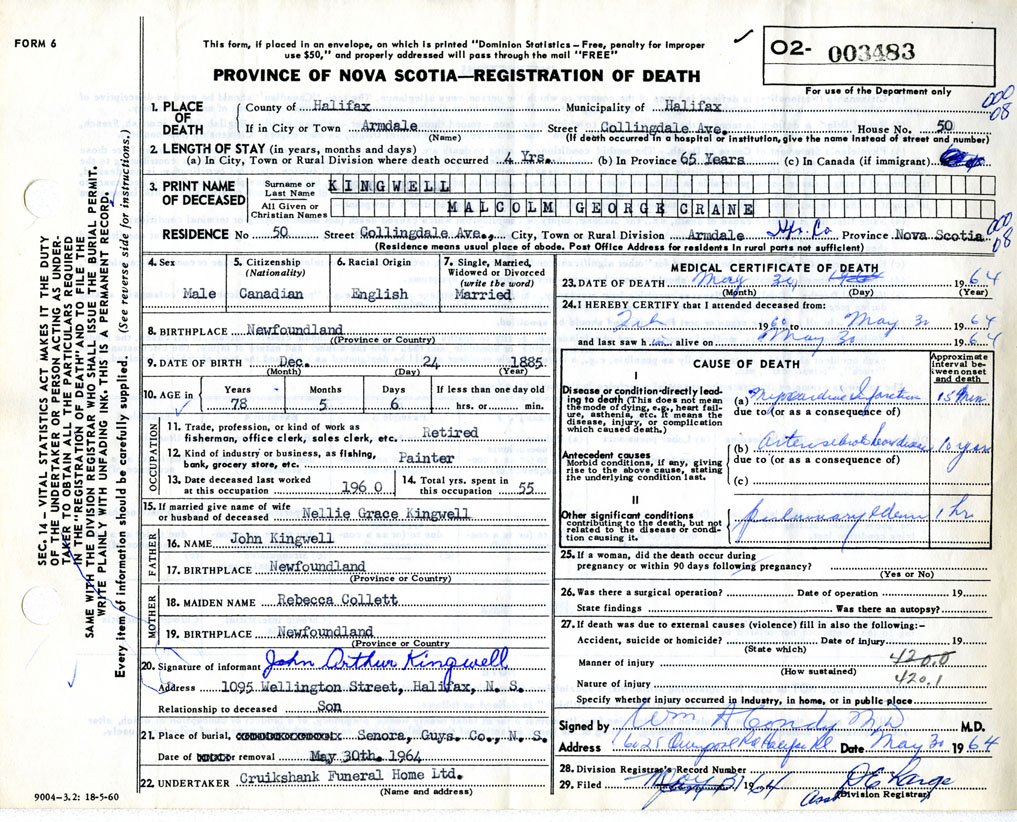 FORM 6
This form, if placed in an envelope, on which is printed "Dominion Statistics – Free, penalty for improper
use $50," and properly addressed will pass through the mail "FREE"
PROVINCE OF NOVA SCOTIA—REGISTRATION OF DEATH
O2- 003483
For use of the Department only
SEC. 14 – VITAL STATISTICS ACT MAKES IT THE DUTY
OF THE UNDERTAKER OR PERSON ACTING AS UNDER-
TAKER TO OBTAIN ALL THE PARTICULARS REQUIRED
IN THE "REGISTRATION OF DEATH" AND TO FILE THE
SAME WITH THE DIVISION REGISTRAR WHO SHALL ISSUE THE BURIAL PERMIT.
WRITE PLAINLY WITH UNFADING INK. THIS IS A PERMANENT RECORD.
Every item of information should be carefully supplied. (See reverse side for instructions.)
1. PLACE OF DEATH
County of Halifax Municipality of Halifax
000
08
If in City or Town Armdale Street Collingdale Ave. House No. 50
(Name) (If death occurred in a hospital or institution, give the name instead of street and number)
2. LENGTH OF STAY (in years, months and days)
(a) In City, Town or Rural Division where death occurred 4 Yrs. (b) In Province 65 Years (c) In Canada (if immigrant)
3. PRINT NAME OF DECEASED
Surname or Last Name KINGWELL
All Given or Christian Names MALCOLM GEORGE CRANE
RESIDENCE No 50 Street Collingdale Ave., City, Town or Rural Division Armdale Hfx. Co Province Nova Scotia
000
08
(Residence means usual place of abode. Post Office Address for residents in rural parts not sufficient)
4. Sex
Male
5. Citizenship
(Nationality)
Canadian
6. Racial Origin
English
7. Single, Married,
Widowed or Divorced
(write the word)
Married
8. BIRTHPLACE Newfoundland
((Province or Country)
9. DATE OF BIRTH Dec. 24 1885
(Month) (Day) (Year)
10. AGE in
Years Months Days If less than one day old
78 5 6 hrs. or min.
OCCUPATION
11. Trade, profession, or kind of work as
fisherman, office clerk, sales clerk, etc. Retired
12. Kind of industry or business, as fishing,
bank, grocery store, etc. Painter
13. Date deceased last worked
at this occupation 196 0
14. Total yrs. spent in
this occupation 55
15. If married give name of wife
or husband of deceased Nellie Grace Kingwell
FATHER
16. NAME John Kingwell
17. BIRTHPLACE Newfoundland
(Province or Country)
MOTHER
18. MAIDEN NAME Rebecca Collett
19. BIRTHPLACE Newfoundland
(Province or Country
20. Signature of informant John Arthur Kingwell
Address 1095 Wellington Street, Halifax, N. S.
Relationship to deceased Son
21. Place of burial, Senora, Guys. Co., N. S.
Date of or removal May 30th. 1964
22. UNDERTAKER Cruikshank Funeral Home Ltd.
(Name and address)
9004–3.2: 18-5-60
MEDICAL CERTIFICATE OF DEATH
23. DATE OF DEATH May 30, 1964
(Month) (Day) (Year)
24. I HEREBY CERTIFY that I attended deceased from:
Feb 1960 to May 30 1964
and last saw him alive on May 30 1964
CAUSE OF DEATH
Approximate
interval be-
tween onset
and death
I
Disease or condition directly lead-
ing to death (This does not mean
the mode of dying, e.g., heart fail-
ure, asthenia, etc. It means the
disease, injury, or complication
which caused death.)
(a) Myocardial Infarction 15 Min
due to (or as a consequence of)
Antecedent causes
Morbid conditions, if any, giving
rise to the above cause, stating
the underlying condition last.
(b) Arteriosclerotic heart disease 10 years
due to (or as a consequence of)
(c)
II
Other significant conditions
contributing to the death, but not
related to the disease or condi-
tion causing it.
pulmonary edema 1 hr
25. If a woman, did the death occur during
pregnancy or within 90 days following pregnancy?
(Yes or No)
26. Was there a surgical operation? Date of operation 19
State findings Was there an autopsy?
27. If death was due to external causes (violence) fill in also the following:–
Accident, suicide or homicide? Date of injury 19
(State which)
Manner of injury 420.0
(How sustained)
Nature of injury 420.1
Specify whether injury occurred in Industry, in home, or in public place
Signed by Wm A Condy MD M.D.
Address 6025 Date May 30 1964
28. Division Registrar's Record Number
29. Filed May 31 1964
Asst (Division Registrar)